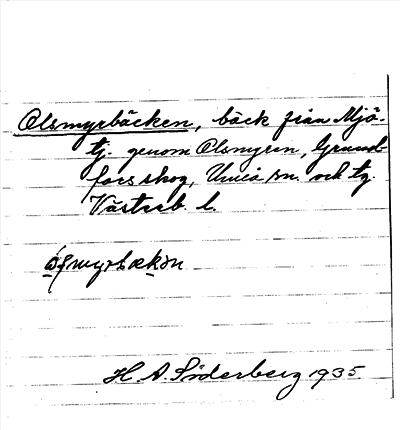 Olsmyrbäcken, bäck från Mjö-
tj. genom Olsmyren, Grund-
fors skog, Umeå sn. och tg.
Västerb. l.
H. A. Söderberg 1935